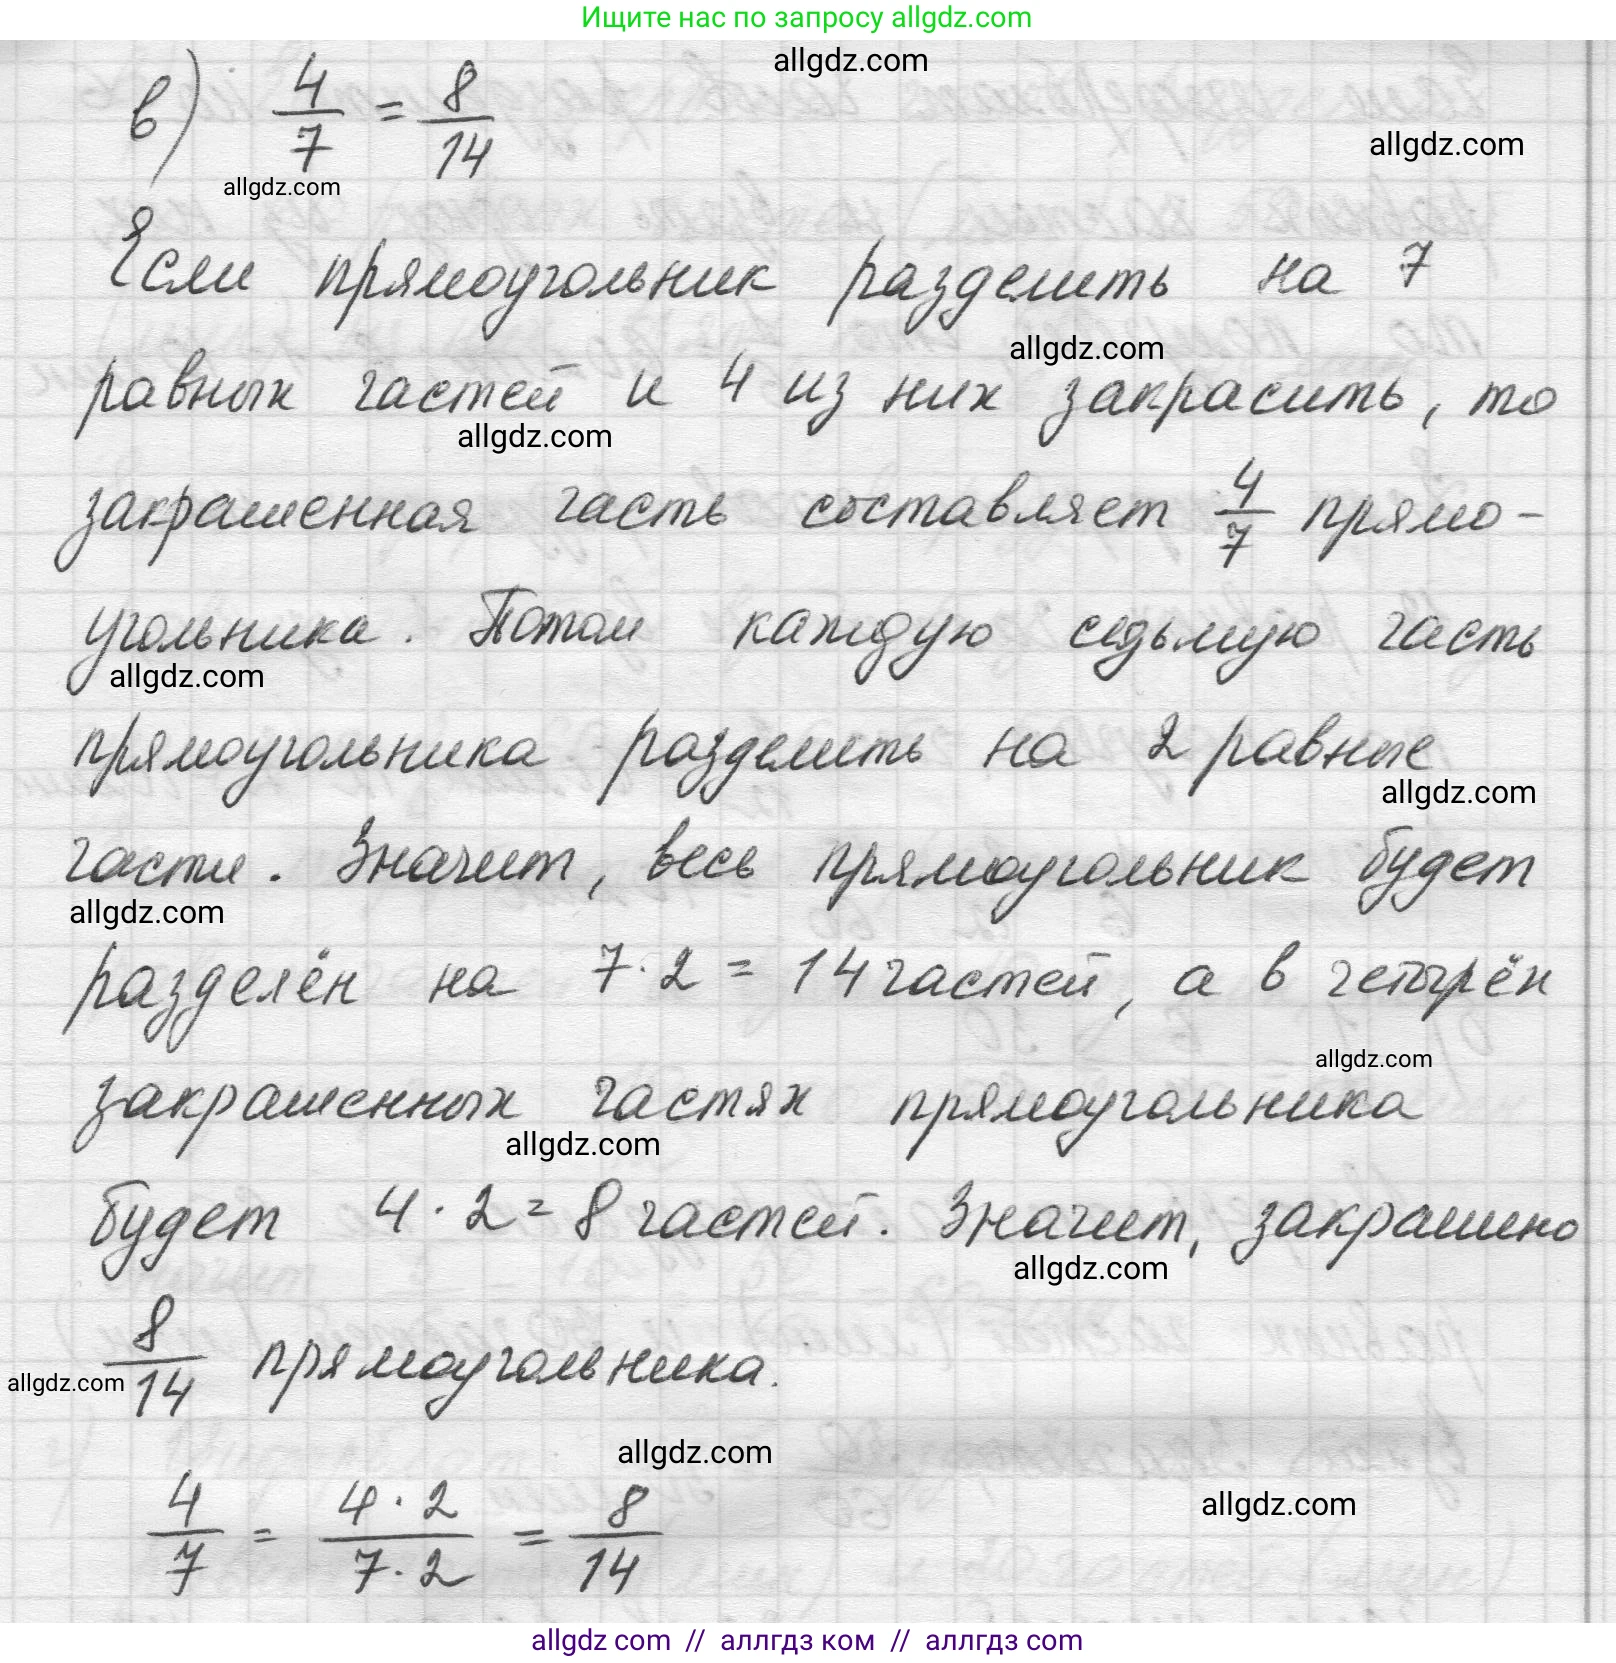 Ищите нас по запросу allgdz.com
allgdz.com
в) 4/7 = 8/14
allgdz.com
allgdz.com
Если прямоугольник разделить на 7
allgdz.com
равных частей и 4 из них закрасить, то
allgdz.com
закрашенная часть составляет 4/7 прямо-
угольника. Потом каждую седьмую часть
allgdz.com
прямоугольника разделить на 2 равные
allgdz.com
части. Значит, весь прямоугольник будет
allgdz.com
разделён на 7·2 = 14 частей, а в четырёх
allgdz.com
закрашенных частях прямоугольника
allgdz.com
будет 4·2=8 частей. Значит, закрашено
allgdz.com
8/14 прямоугольника.
allgdz.com
allgdz.com
allgdz.com
4/7 = 4·2/7·2 = 8/14
allgdz com // аллгдз ком // аллгдз.com